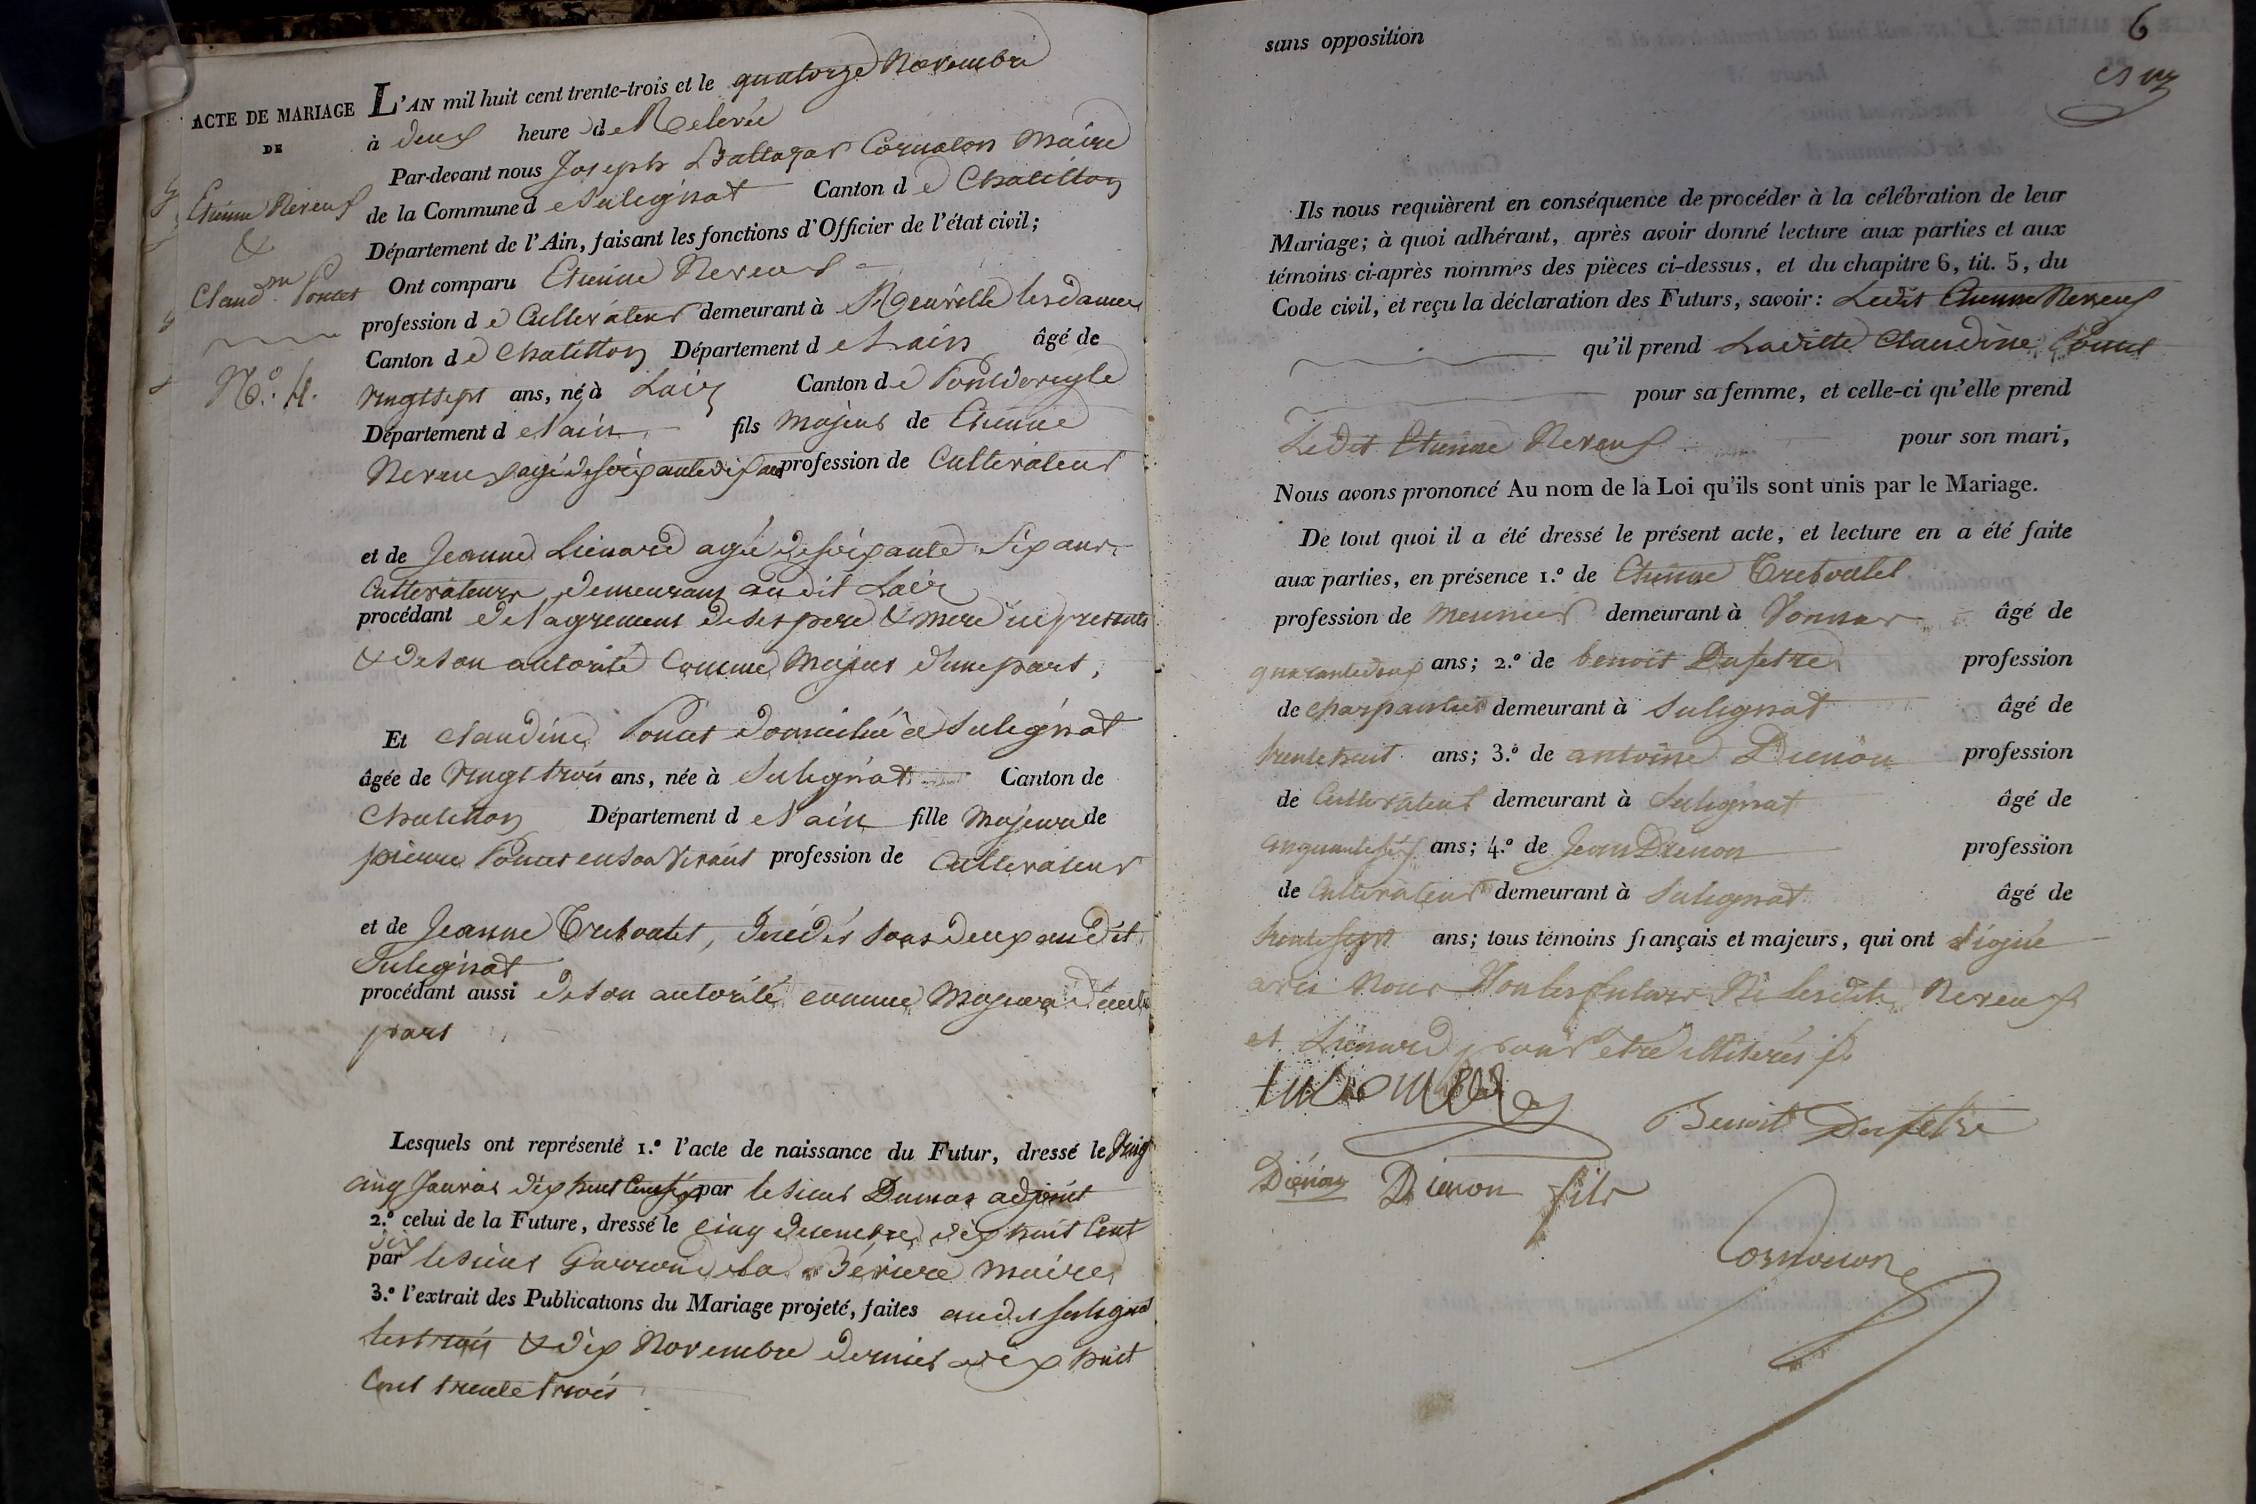 ACTE DE MARIAGE
DE
Etienne Neveux
&
Claud.ne Poncet
N.o 4.
L'AN mil huit cent trente-trois et le quatorze Novembre
à deux heure de Relevée
Par-devant nous Joseph Baltazar Cornaton Maire
de la Commune de Sulignat Canton de Chatillon
Département de l'Ain, faisant les fonctions d'Officier de l'état civil;
Ont comparu Etienne Neveux
profession de Cultivateur demeurant à Neuville les dames
Canton de Chatillon Département de Lain âgé de
vingt sept ans, né à Laiz Canton de Pontdeveyle
Département de Lain fils majeur de Etienne
Neveux agé de soixante dix ans profession de Cultivateur
et de Jeanne Lienard agée de soixante six ans
Cultivateurs demeurans au dit Laiz
procédant de l'agrement de ses pere & mere ici presents
& de son autorité Comme Majeur d'une part,
Et Claudine Poncet domiciliée à Sulignat
âgée de vingt trois ans, née à Sulignat Canton de
Chatillon Département de Lain fille Majeure de
pierre Poncet en son vivant profession de Cultivateur
et de Jeanne Treboulet, décédés tous deux au dit
Sulignat
procédant aussi de son autorité comme Majeure d'autre
part
Lesquels ont représenté 1.° l'acte de naissance du Futur, dressé le vingt
cinq Janvier dix huit Cent six par le sieur Dumas adjoint
2.° celui de la Future, dressé le cinq decembre dix huit Cent
dix
par le sieur Garron de la Béviere maire
3.° l'extrait des Publications du Mariage projeté, faites au dit Sulignat
les trois & dix Novembre dernier dix huit
Cent trente trois
6
sans opposition
Ils nous requièrent en conséquence de procéder à la célébration de leur
Mariage; à quoi adhérant, après avoir donné lecture aux parties et aux
témoins ci-après nommés des pièces ci-dessus, et du chapitre 6, tit. 5, du
Code civil, et reçu la déclaration des Futurs, savoir: Ledit Etienne Neveux
qu'il prend Ladite Claudine Poncet
pour sa femme, et celle-ci qu'elle prend
Ledit Etienne Neveux pour son mari,
Nous avons prononcé Au nom de la Loi qu'ils sont unis par le Mariage.
De tout quoi il a été dressé le présent acte, et lecture en a été faite
aux parties, en présence 1.° de Etienne Treboulet
profession de Meunier demeurant à Vonnas âgé de
quarante deux ans; 2.° de benoit Dufetre profession
de charpentier demeurant à Sulignat âgé de
trente huit ans; 3.° de antoine Dienon profession
de Cultivateur demeurant à Sulignat âgé de
cinquante six ans; 4.° de Jean Dienon profession
de Cultivateur demeurant à Sulignat âgé de
trente sept ans; tous témoins français et majeurs, qui ont signé
avec Nous Non les futurs Ni lesdits Neveux
et Lienard pour etre illiterés
Benoit Dufetre
Dienon Dienon fils
Cornaton